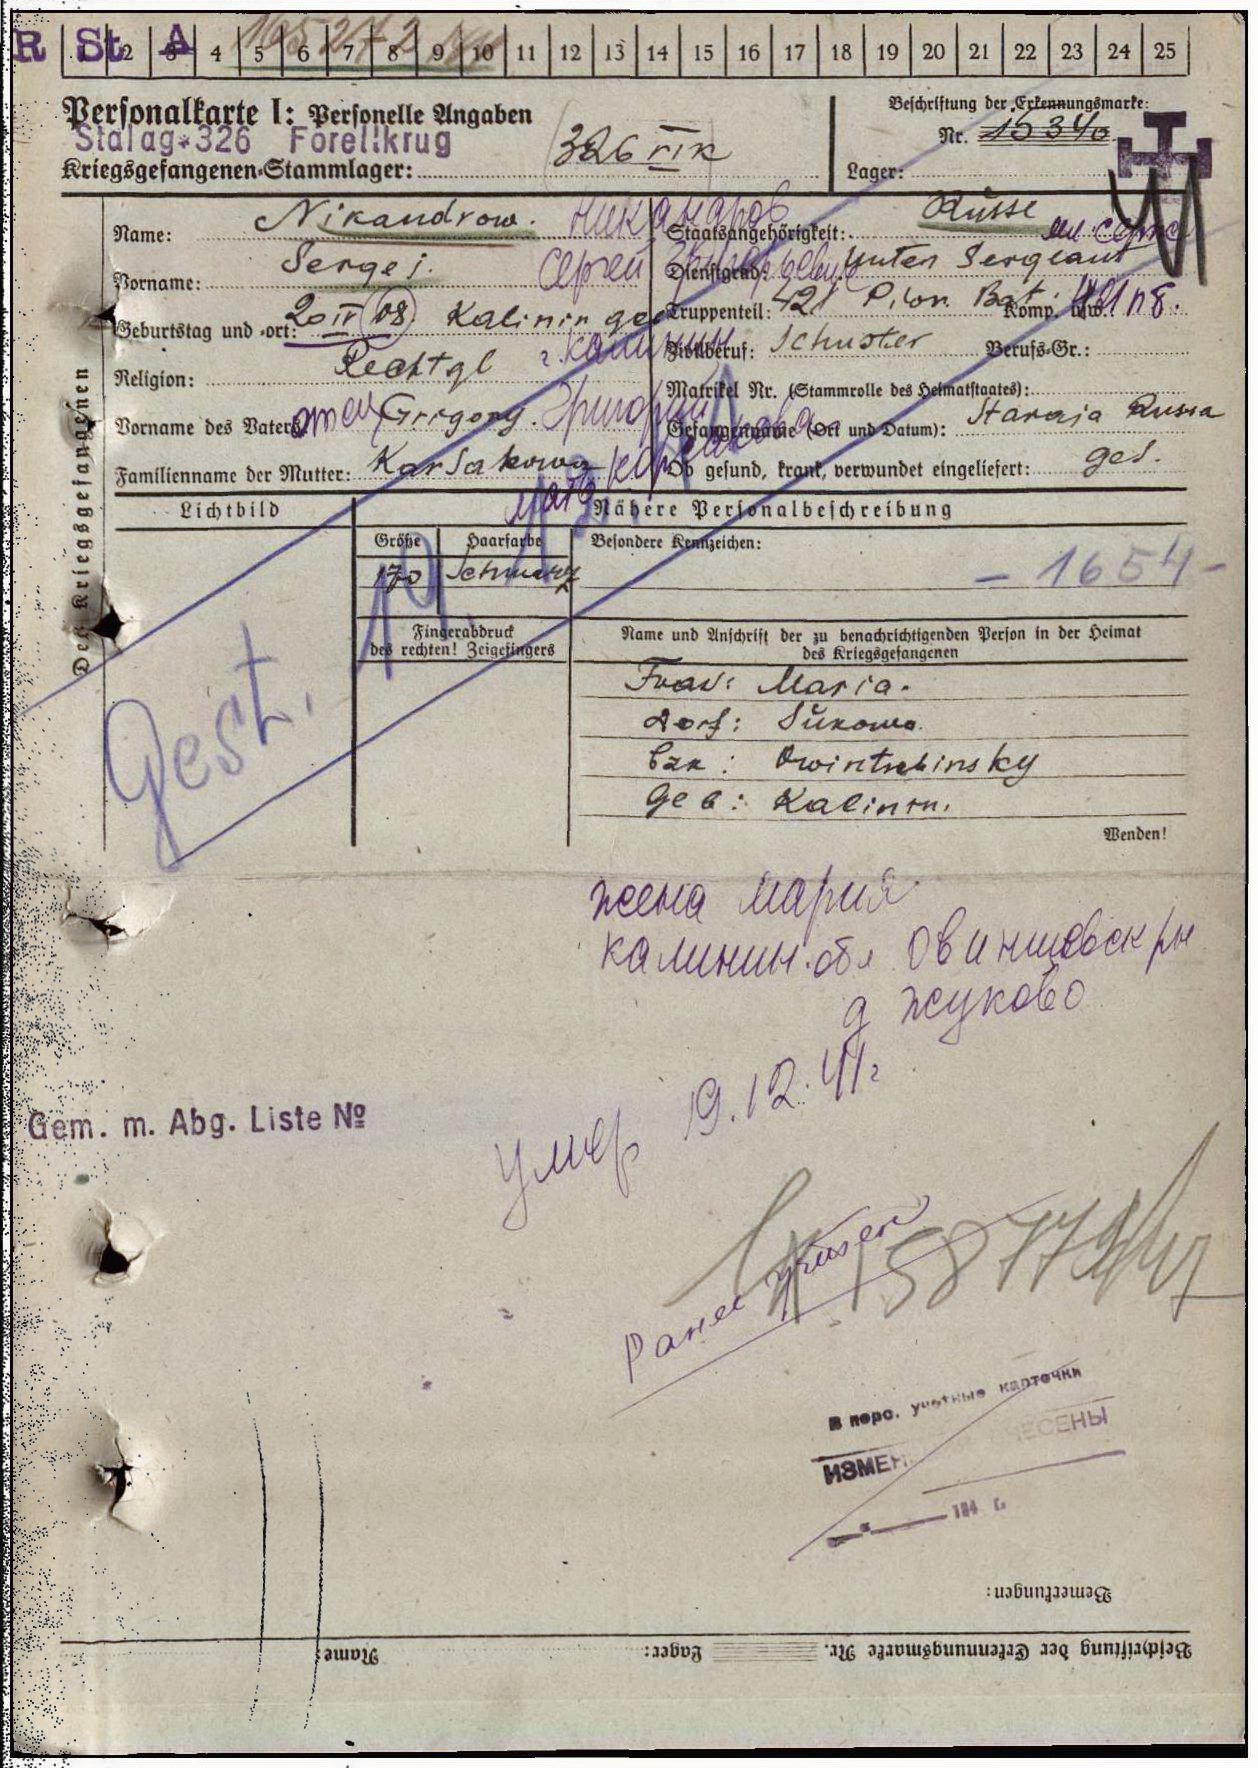 R St A
1 2 3 4 5 6 7 8 9 10 11 12 13 14 15 16 17 18 19 20 21 22 23 24 25
Personalkarte I: Personelle Angaben
Stalag 326 Forellkrug
Kriegsgefangenen-Stammlager:
326 VI K
Beschriftung der Erkennungsmarke:
Nr. 15340
Lager:
Der Kriegsgefangenen
Name: Nikandrow.
Vorname: Sergej. Сергей
Geburtstag und -ort: 20 IV 08 Kalinin
г. Калинин
Religion: Rechtgl
Vorname des Vaters: отец Grigory. Григорий
Familienname der Mutter: Karsakowa
мать
Staatsangehörigkeit: Russe
Dienstgrad: Unter Sergeant
Truppenteil: 421 Pion. Bat. Komp. usw.: 421 п б.
Zivilberuf: Schuster Berufs-Gr.:
Matrikel Nr. (Stammrolle des Heimatstaates):
Gefangennahme (Ort und Datum): Staraja Russa
Ob gesund, krank, verwundet eingeliefert: ges.
Lichtbild
Nähere Personalbeschreibung
Größe Haarfarbe Besondere Kennzeichen:
170 Schwarz
- 1654 -
Fingerabdruck
des rechten! Zeigefingers
Name und Anschrift der zu benachrichtigenden Person in der Heimat
des Kriegsgefangenen
Frau: Maria.
Dorf: Sukowo.
Bzk: Owintschinsky
Geb: Kalinin.
Gest. 19. 12. 41
Wenden!
жена Мария
Калинин. обл Овинщевск рн
д Жуково
умер 19.12.41 г
Gem. m. Abg. Liste №
Ранее учтен
В перс. учетные карточки
194 г.
Bemerkungen:
Beschriftung der Erkennungsmarke Nr. Lager: Name: